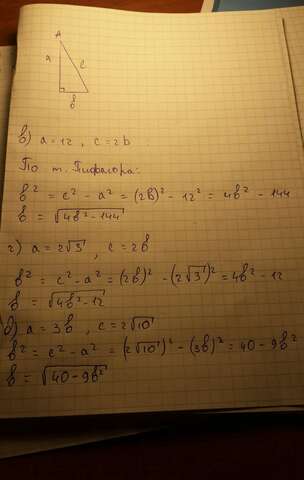 A
a
c
b
в) a = 12, c = 2b
По т. Пифагора:
b² = c² - a² = (2b)² - 12² = 4b² - 144
b = √(4b² - 144)
г) a = 2√3, c = 2b
b² = c² - a² = (2b)² - (2√3)² = 4b² - 12
b = √(4b² - 12)
д) a = 3b, c = 2√10
b² = c² - a² = (2√10)² - (3b)² = 40 - 9b²
b = √(40 - 9b²)